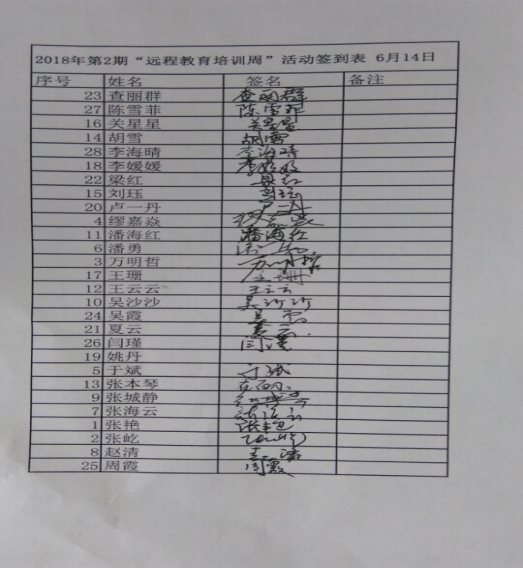 2018年第2期“远程教育培训周”活动签到表 6月14日
序号 姓名 签名 备注
23 查丽群 查丽群
27 陈雪菲 陈雪菲
16 关星星 关星星
14 胡雪 胡雪
28 李海晴 李海晴
18 李媛媛 李媛媛
22 梁红 梁红
15 刘珏 刘珏
20 卢一丹
4 缪嘉焱
11 潘海红 潘海红
6 潘勇
3 万明哲 万明哲
17 王珊 王珊
12 王云云 王云云
10 吴沙沙 吴沙沙
24 吴霞 吴霞
21 夏云 夏云
26 闫瑾 闫瑾
19 姚丹
5 于斌 于斌
13 张本琴
9 张城静
7 张海云
1 张艳 张艳
2 张屹
8 赵清
25 周霞 周霞